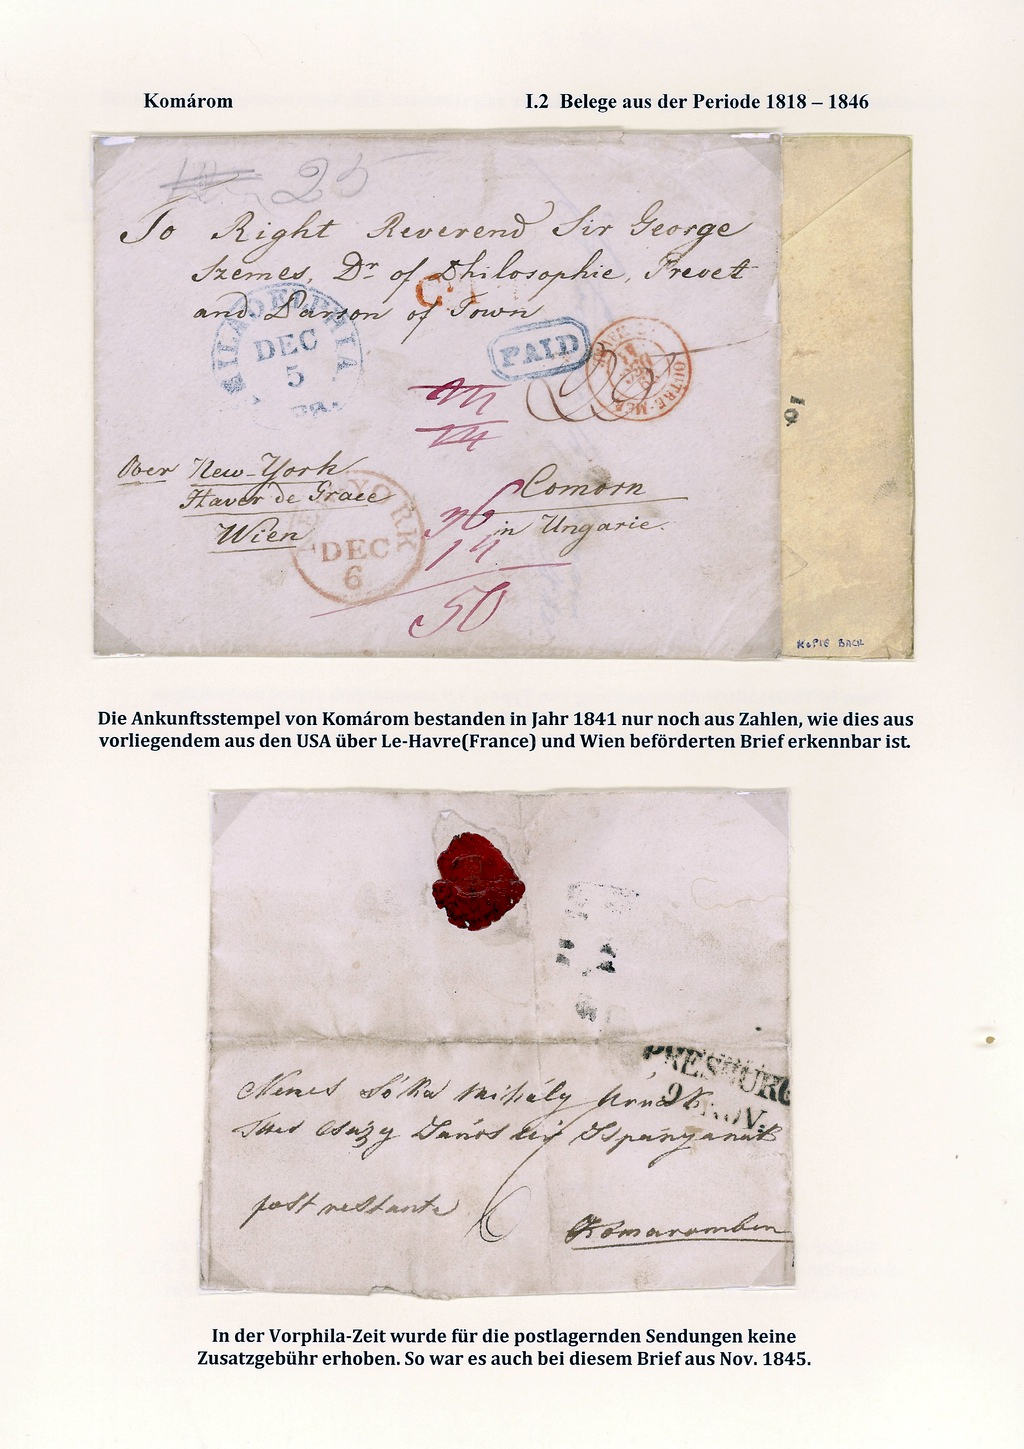 Komárom
I.2 Belege aus der Periode 1818 – 1846
25
To Right Reverend Sir George
Szemes, Dr of Philosophie, Prevet
and Parson of Town
PHILADELPHIA
DEC
5
PAID
OUTRE-MER
14
Over New-York
Haver de Grace
Wien
NEW YORK
DEC
6
Comorn
in Ungarie.
36
14
50
10
KOPIE BACK
Die Ankunftsstempel von Komárom bestanden in Jahr 1841 nur noch aus Zahlen, wie dies aus
vorliegendem aus den USA über Le-Havre(France) und Wien beförderten Brief erkennbar ist.
PRESBURG
9 NOV.
Nemes Sóka Mihály Úrnak
Csúzy János Ispányanak
post restante
6
Komaromban
In der Vorphila-Zeit wurde für die postlagernden Sendungen keine
Zusatzgebühr erhoben. So war es auch bei diesem Brief aus Nov. 1845.